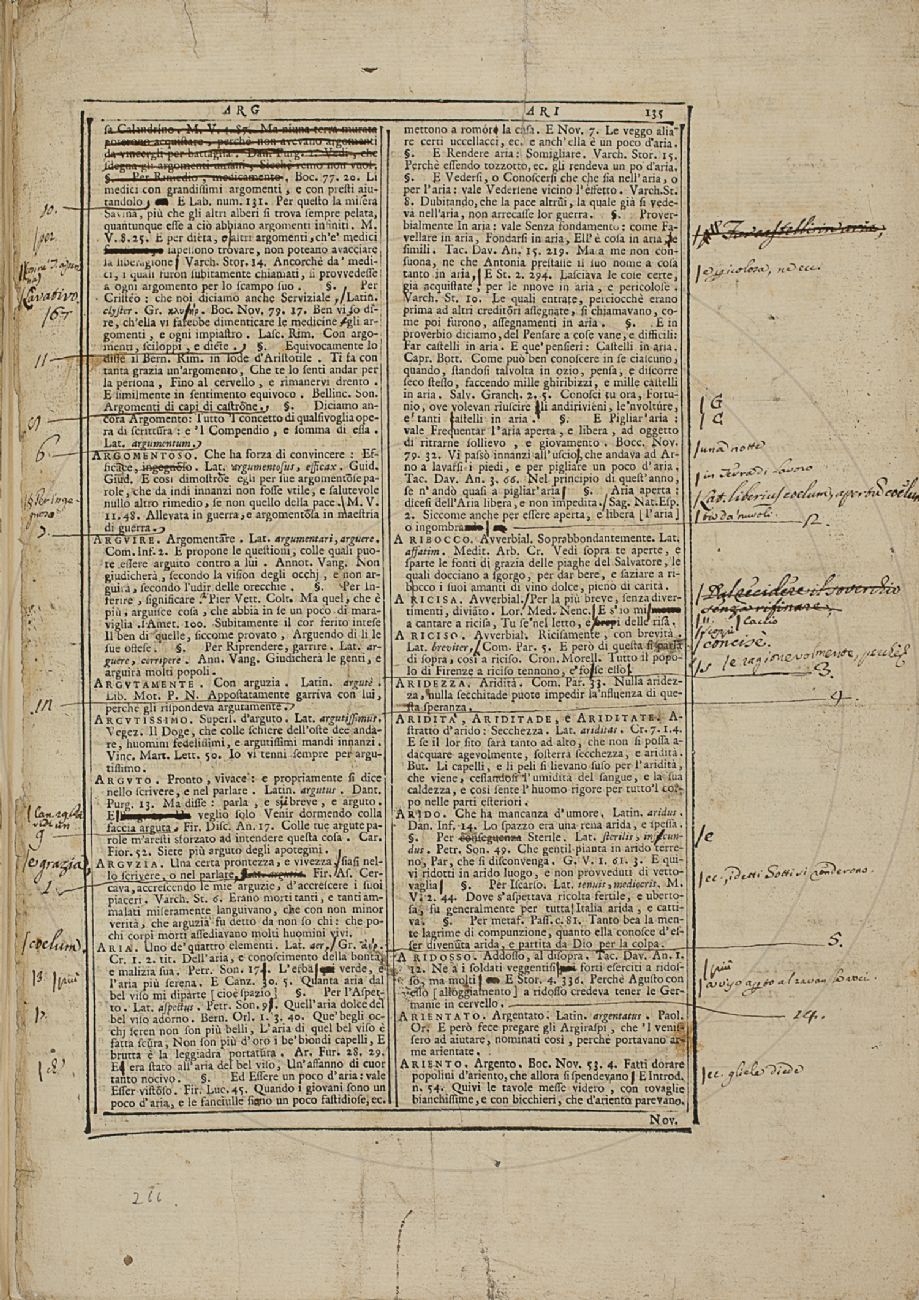 ARG
ARI 135
sa Calandrino. M. V. 4. 87. Ma niuna terra murata
poterono acquistare, perchè non avevano argomenti
da vincergli per battaglia. Dan. Purg. 2. Vedi, che
sdegna gli argomenti umani, Sicchè remo non vuol.
§. Per Rimedio, medicamento. Boc. 77. 20. Li
medici con grandissimi argomenti, e con presti aiu-
tandolo, E Lab. num. 131. Per questo la misera
Savina, più che gli altri alberi si trova sempre pelata,
quantunque esse a ciò abbiano argomenti infiniti. M.
V. 8. 25. E per dieta, e altri argomenti, ch'e' medici
sapessono trovare, non poteano avacciare
la liberagione Varch. Stor. 14. Ancorchè da' medi-
ci, i quali furon subitamente chiamati, si provvedesse
a ogni argomento per lo scampo suo. §. Per
Cristéo: che noi diciamo anche Serviziale, Latin.
clyster. Gr. κλυςήρ. Boc. Nov. 79. 17. Ben vi so di-
re, ch'ella vi farebbe dimenticare le medicine gli ar-
gomenti, e ogni impiastro. Lasc. Rim. Con argo-
menti, sciloppi, e diete, §. Equivocamente lo
disse il Bern. Rim. in lode d'Aristotile. Ti fa con
tanta grazia un'argomento, Che te lo senti andar per
la persona, Fino al cervello, e rimanervi drento.
E similmente in sentimento equivoco. Bellinc. Son.
Argomenti di capi di castróne, §. Diciamo an-
cora Argomento: Tutto 'l concetto di qualsivoglia ope-
ra di scrittura: e 'l Compendio, e somma di essa.
Lat. argumentum,
ARGOMENTOSO. Che ha forza di convincere: Ef-
ficace, ingegnóso. Lat. argumentosus, efficax. Guid.
Giud. E così dimostróe egli per sue argomentóse pa-
role, che da indi innanzi non fosse utile, e salutevole
nullo altro rimedio, se non quello della pace. M. V.
11. 48. Allevata in guerra, e argomentósa in maestria
di guerra.
ARGUIRE. Argomentare. Lat. argumentari, arguere.
Com. Inf. 2. E propone le questioni, colle quali puo-
te essere arguito contro a lui. Annot. Vang. Non
giudicherà, secondo la vision degli occhj, e non ar-
guirà, secondo l'udir delle orecchie. §. Per In-
ferire, significare. Pier Vett. Colt. Ma quel, che è
più, arguisce cosa, che abbia in se un poco di mara-
viglia. Amet. 100. Subitamente il cor ferito intese
Il ben di quelle, siccome provato, Arguendo di lì le
sue offese. §. Per Riprendere, garrire. Lat. ar-
guere, corripere. Ann. Vang. Giudicherà le genti, e
arguirà molti popoli.
ARGUTAMENTE. Con arguzia. Latin. argutè.
Lib. Mot. P. N. Appostatamente garriva con lui,
perchè gli rispondeva argutamente.
ARGUTISSIMO. Superl. d'arguto. Lat. argutissimus.
Vegez. Il Doge, che colle schiere dell'oste dee anda-
re, huomini fedelissimi, e argutissimi mandi innanzi.
Vinc. Mart. Lett. 50. Io vi tenni sempre per argu-
tissimo.
ARGUTO. Pronto, vivace: e propriamente si dice
nello scrivere, e nel parlare. Latin. argutus. Dant.
Purg. 13. Ma disse: parla, e sij breve, e arguto.
E veglio solo Venir dormendo colla
faccia arguta. Fir. Disc. An. 17. Colle tue argute pa-
role m'aresti sforzato ad intendere questa cosa. Car.
Fior. 52. Siete più arguto degli apotegmi.
ARGUZIA. Una certa prontezza, e vivezza, siasi nel-
lo scrivere, o nel parlare, Lat. argutia. Fir. As. Cer-
cava, accrescendo le mie arguzie, d'accrescere i suoi
piaceri. Varch. St. 6. Erano morti tanti, e tanti am-
malati miseramente languivano, che con non minor
verità, che arguzia fu detto da non so chi: che po-
chi corpi morti assediavano molti huomini vivi.
ARIA. Uno de' quattro elementi. Lat. aer, Gr. ἀήρ.
Cr. 1. 2. tit. Dell'aria, e conoscimento della bontà,
e malizia sua. Petr. Son. 17. L'erba verde, e
l'aria più serena. E Canz. 30. 5. Quanta aria dal
bel viso mi diparte [cioè spazio] §. Per l'Aspet-
to. Lat. aspectus. Petr. Son. 91. Quell'aria dolce del
bel viso adorno. Bern. Orl. 1. 3. 40. Que' begli oc-
chj seren non son più belli, L'aria di quel bel viso è
fatta scura, Non son più d'oro i be' biondi capelli, E
brutta è la leggiadra portatura. Ar. Fur. 28. 29.
E era stato all'aria del bel viso, Un'affanno di cuor
tanto nocivo. §. Ed Essere un poco d'aria: vale
Esser vistóso. Fir. Luc. 45. Quando i giovani sono un
poco d'aria, e le fanciulle sieno un poco fastidiose, ec.
mettono a romóre la casa. E Nov. 7. Le veggo alia-
re certi uccellacci, ec. e anch'ella è un poco d'aria.
§. E Rendere aria: Somigliare. Varch. Stor. 15.
Perchè essendo tozzotto, ec. gli rendeva un po d'aria.
§. E Vedersi, o Conoscersi che che sia nell'aria, o
per l'aria: vale Vedersene vicino l'effetto. Varch. St.
8. Dubitando, che la pace altrui, la quale già si vede-
va nell'aria, non arrecasse lor guerra. §. Prover-
bialmente In aria: vale Senza fondamento: come Fa-
vellare in aria, Fondarsi in aria, Ell'è cosa in aria, e
simili. Tac. Dav. An. 15. 219. Ma a me non con-
suona, nè che Antonia prestasse il suo nome a cosa
tanto in aria, E St. 2. 294. Lasciava le cose certe,
già acquistate per le nuove in aria, e pericolose.
Varch. St. 10. Le quali entrate, perciocchè erano
prima ad altri creditóri assegnate, si chiamavano, co-
me poi furono, assegnamenti in aria. §. E in
proverbio diciamo, del Pensare a cose vane, e difficili:
Far castelli in aria. E que' pensieri: Castelli in aria.
Capr. Bott. Come può ben conoscere in se ciascuno,
quando, standosi talvolta in ozio, pensa, e discorre
seco stesso, faccendo mille ghiribizzi, e mille castelli
in aria. Salv. Granch. 2. 5. Conosci tu ora, Fortu-
nio, ove volevan riuscire gli andirivieni, le 'nvolture,
e' tanti castelli in aria. §. E Pigliar'aria:
vale Frequentar l'aria aperta, e libera, ad oggetto
di ritrarne sollievo, e giovamento. Bocc. Nov.
79. 32. Vi passò innanzi all'uscio, che andava ad Ar-
no a lavarsi i piedi, e per pigliare un poco d'aria.
Tac. Dav. An. 3. 66. Nel principio di quest'anno,
se n'andò quasi a pigliar'aria §. Aria aperta:
dicesi dell'Aria libera, e non impedita. Sag. Nat. Esp.
2. Siccome anche per essere aperta, e libera [l'aria]
o ingombra
A RIBOCCO. Avverbial. Soprabbondantemente. Lat.
affatim. Medit. Arb. Cr. Vedi sopra te aperte, e
sparte le fonti di grazia delle piaghe del Salvatore, le
quali docciano a sgorgo, per dar bere, e saziare a ri-
bocco i suoi amanti di vino dolce, pieno di carità.
A RICISA. Avverbial. Per la più breve, senza diver-
timenti, diviato. Lor. Med. Nenc. E s'io mi
a cantare a ricisa, Tu se' nel letto, e delle risa.
A RICISO. Avverbial. Ricisamente, con brevità.
Lat. breviter, Com. Par. 5. E però di questa si parla
di sopra, così a riciso. Cron. Morell. Tutto il popo-
lo di Firenze a riciso tennono, e fosse ello
ARIDEZZA. Aridità. Com. Par. 33. Nulla aridez-
za, nulla secchitade puote impedir la influenza di que-
sta speranza.
ARIDITÀ, ARIDITADE, e ARIDITATE. A-
stratto d'arido: Secchezza. Lat. ariditas. Cr. 7. 1. 4.
E se il lor sito sarà tanto ad alto, che non si possa a-
dacquare agevolmente, sosterrà secchezza, e aridità.
But. Li capelli, e li peli si lievano suso per l'aridità,
che viene, cessandosi l'umidità del sangue, e la sua
caldezza, e così sente l'huomo rigore per tutto 'l cor-
po nelle parti esteriori.
ARIDO. Che ha mancanza d'umore. Latin. aridus.
Dan. Inf. 14. Lo spazzo era una rena arida, e spessa.
§. Per conseguenza Sterile. Lat. sterilis, infecun-
dus. Petr. Son. 49. Che gentil pianta in arido terre-
no, Par, che si disconvenga. G. V. 1. 61. 3. E qui-
vi ridotti in arido luogo, e non provveduti di vetto-
vaglia §. Per Iscarso. Lat. tenuis, mediocris. M.
V. 2. 44. Dove s'aspettava ricolta fertile, e uberto-
sa, fu generalmente per tutta Italia arida, e catti-
va. §. Per metaf. Pass. c. 81. Tanto bea la men-
te lagrime di compunzione, quanto ella conosce d'es-
ser divenuta arida, e partita da Dio per la colpa.
A RIDOSSO. Addosso, al disopra. Tac. Dav. An. 1.
12. Nè a i soldati veggentisi forti eserciti a ridos-
so, ma molti E Stor. 4. 336. Perchè Agusto con
esso [alloggiamento] a ridosso credeva tener le Ger-
manie in cervello.
ARIENTATO. Argentato. Latin. argentatus. Paol.
Or. E però fece pregare gli Argiraspi, che 'l venis-
sero ad aiutare, nominati così, perchè portavano ar-
me arientate.
ARIENTO. Argento. Boc. Nov. 53. 4. Fatti dorare
popolini d'ariento, che allora si spendevano E Introd.
n. 54. Quivi le tavole messe videro, con tovaglie
bianchissime, e con bicchieri, che d'ariento parevano.
Nov.
10.
per
Lavativo
167
11
6.
9
e grazia
coelum
18. più
Far castelli in aria,
G
G
una notte
in Terra di Lavoro
Lat. liberius coelum, apertum coelum
12.
senza rifinare,
concisè.
3.
4.
e
5.
più
14.
ec. gliele diede
211